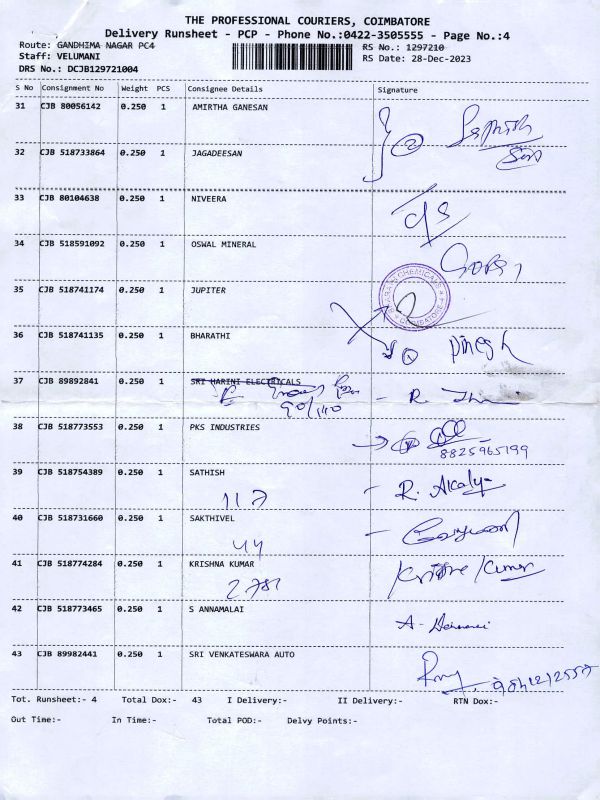 THE PROFESSIONAL COURIERS, COIMBATORE
Delivery Runsheet - PCP - Phone No.:0422-3505555 - Page No.:4
Route: GANDHIMA NAGAR PC4
RS No.: 1297210
Staff: VELUMANI
RS Date: 28-Dec-2023
DRS No.: DCJB129721004
S No Consignment No Weight PCS Consignee Details Signature
31 CJB 80056142 0.250 1 AMIRTHA GANESAN
2
32 CJB 518733864 0.250 1 JAGADEESAN
33 CJB 80104638 0.250 1 NIVEERA
34 CJB 518591092 0.250 1 OSWAL MINERAL
35 CJB 518741174 0.250 1 JUPITER
CHEMICALS
COIMBATORE
36 CJB 518741135 0.250 1 BHARATHI
Dinesh
37 CJB 89892841 0.250 1 SRI HARINI ELECTRICALS
90/140
38 CJB 518773553 0.250 1 PKS INDUSTRIES
8825965199
39 CJB 518754389 0.250 1 SATHISH
R. Alalya
117
40 CJB 518731660 0.250 1 SAKTHIVEL
44
41 CJB 518774284 0.250 1 KRISHNA KUMAR
Krishna Kumar
42 CJB 518773465 0.250 1 S ANNAMALAI
43 CJB 89982441 0.250 1 SRI VENKATESWARA AUTO
Tot. Runsheet:- 4 Total Dox:- 43 I Delivery:- II Delivery:- RTN Dox:-
Out Time:- In Time:- Total POD:- Delvy Points:-